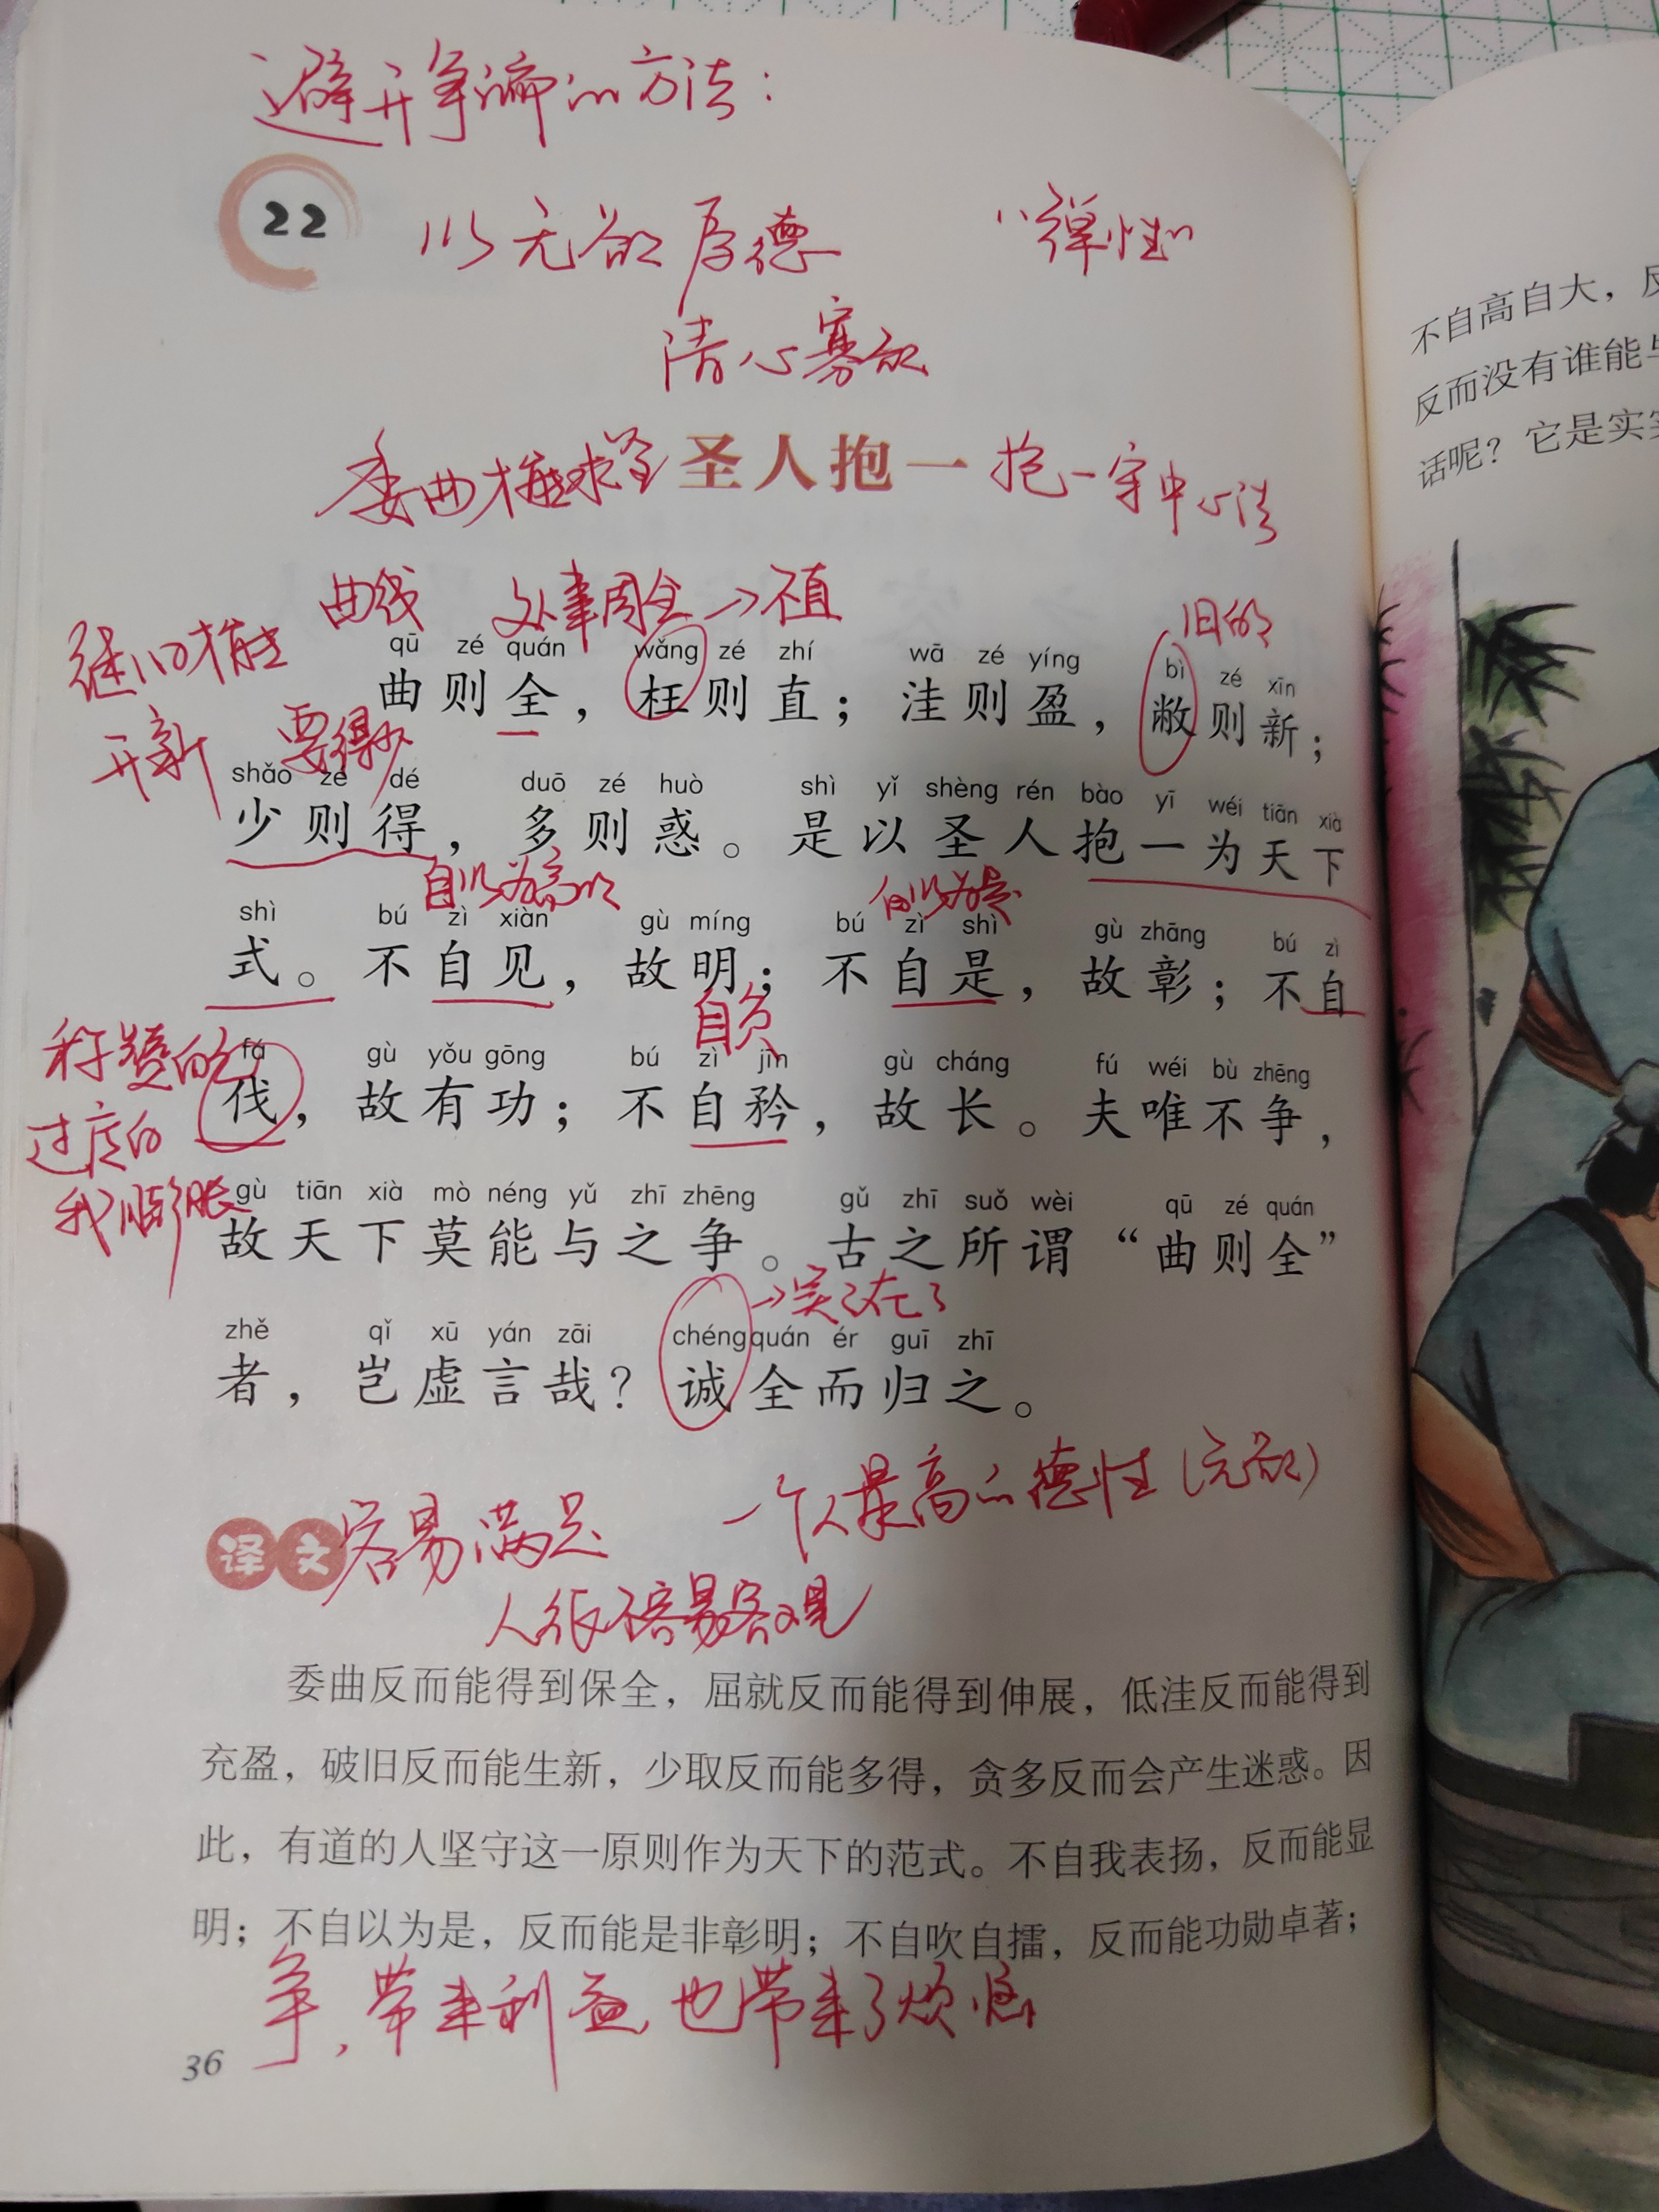 避开争论的方法:
22
以无欲厚德 "弹性"
清心寡欲
委曲才能求全 圣人抱一 抱一守中心法
曲线 处事周全→不直
旧的
继旧才能
开新 要得少
qū zé quán wǎng zé zhí wā zé yíng bì zé xīn
曲则全，枉则直；洼则盈，敝则新；
shǎo zé dé duō zé huò shì yǐ shèng rén bào yī wéi tiān xià
少则得，多则惑。是以圣人抱一为天下
自以为高明 自以为是
shì bú zì xiàn gù míng bú zì shì gù zhāng bú zì
式。不自见，故明；不自是，故彰；不自
自负
称赞的
fá gù yǒu gōng bú zì jīn gù cháng fú wéi bù zhēng
伐，故有功；不自矜，故长。夫唯不争，
过度的
我膨胀
gù tiān xià mò néng yǔ zhī zhēng gǔ zhī suǒ wèi qū zé quán
故天下莫能与之争。古之所谓“曲则全”
→实实在在
zhě qǐ xū yán zāi chéng quán ér guī zhī
者，岂虚言哉？诚全而归之。
一个人最高的德性(无欲)
译文 容易满足
人很不容易客观
委曲反而能得到保全，屈就反而能得到伸展，低洼反而能得到
充盈，破旧反而能生新，少取反而能多得，贪多反而会产生迷惑。因
此，有道的人坚守这一原则作为天下的范式。不自我表扬，反而能显
明；不自以为是，反而能是非彰明；不自吹自擂，反而能功勋卓著；
争，带来利益，也带来了烦恼
36
不自高自大，
反而没有谁能
话呢？它是实